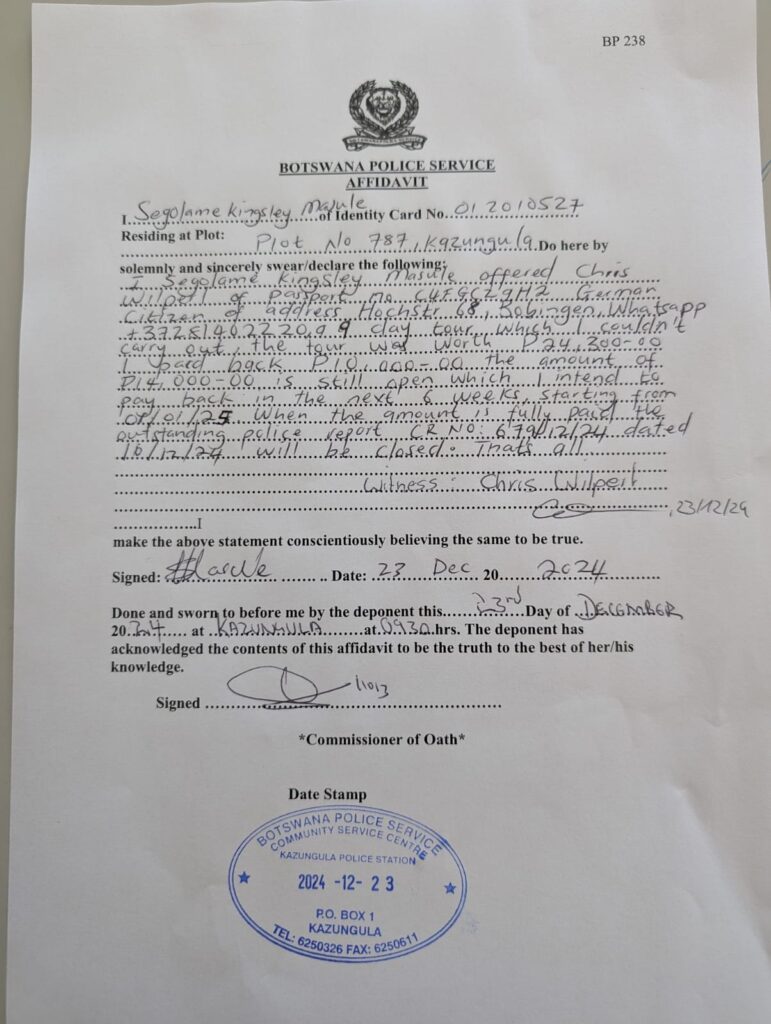 BP 238
BOTSWANA POLICE SERVICE
AFFIDAVIT
I Segolame Kingsley Masule of Identity Card No. 012010527
Residing at Plot: Plot No 787, Kazungula. Do here by
solemnly and sincerely swear/declare the following:
I Segolame Kingsley Masule offered Chris
Wilpert of Passport no German
Citizen of address Hochstr 68, Whatsapp
9 day tour, which I couldn't
carry out, the tour was worth P24,300-00
I paid back P10,000-00 the amount of
P14,000-00 is still open which I intend to
pay back in the next 6 weeks, starting from
01/01/25 When the amount is fully paid the
outstanding police report CR NO: 679/12/24 dated
16/12/24 will be closed. Thats all
Witness: Chris Wilpert
, 23/12/24
I
make the above statement conscientiously believing the same to be true.
Signed: Date: 23 Dec 20 2024
Done and sworn to before me by the deponent this 23rd Day of DECEMBER
2024 at KAZUNGULA at 0930 hrs. The deponent has
acknowledged the contents of this affidavit to be the truth to the best of her/his
knowledge.
Signed 11013
*Commissioner of Oath*
Date Stamp
BOTSWANA POLICE SERVICE
COMMUNITY SERVICE CENTRE
KAZUNGULA POLICE STATION
2024 -12- 23
P.O. BOX 1
KAZUNGULA
TEL: 6250326 FAX: 6250611